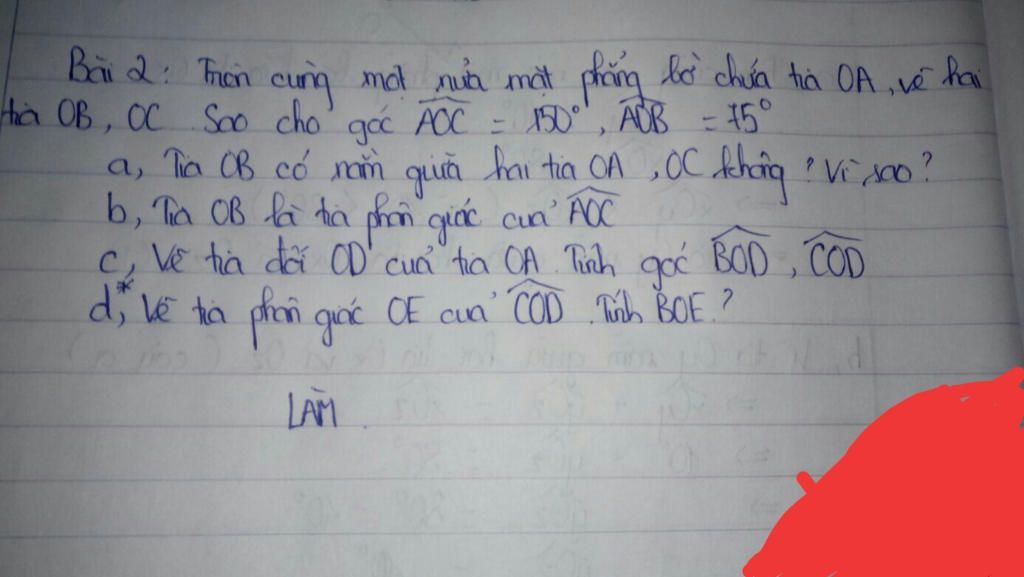 Bài 2: Trên cùng một nửa mặt phẳng bờ chứa tia OA, vẽ hai
tia OB, OC. Sao cho góc AOC = 150°, AOB = 75°
a, Tia OB có nằm giữa hai tia OA, OC không? Vì sao?
b, Tia OB là tia phân giác của AOC
c, Vẽ tia đối OD của tia OA. Tính góc BOD, COD
d,* Vẽ tia phân giác OE của COD. Tính BOE.?
LÀM.